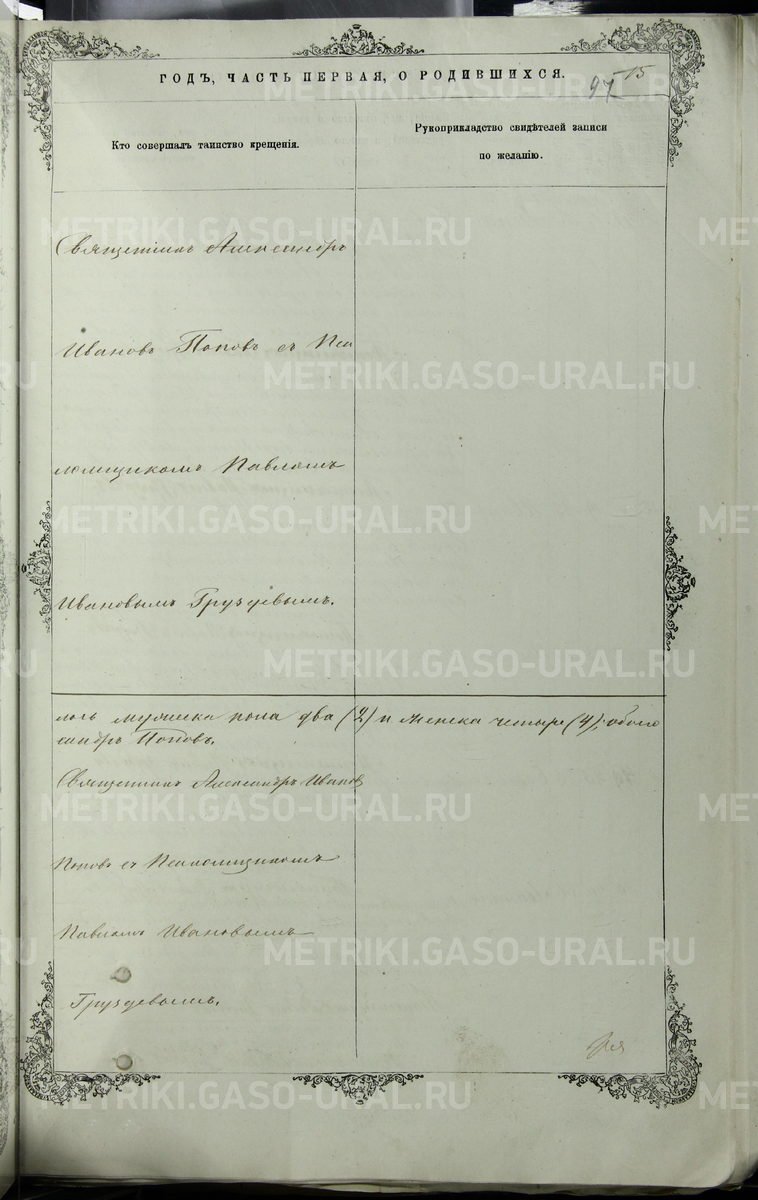 ГОДЪ, ЧАСТЬ ПЕРВАЯ, О РОДИВШИХСЯ.
15
Кто совершалъ таинство крещенія.
Рукоприкладство свидѣтелей записи
по желанію.
Священникъ Александръ
Ивановъ Поповъ съ Пса
ломщикомъ Павломъ
Ивановымъ Груздевымъ.
лось мужеска пола два (2) и женска четыре (4), обоего
сандръ Поповъ.
Священникъ Александръ Ивановъ
Поповъ съ Псаломщикомъ
Павломъ Ивановымъ
Груздевымъ.
METRIKI.GASO-URAL.RU